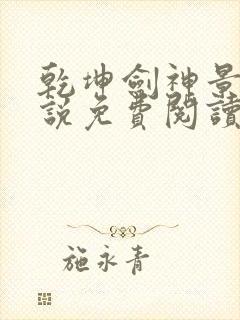 乾坤劍神景
說免費閱讀
施永青